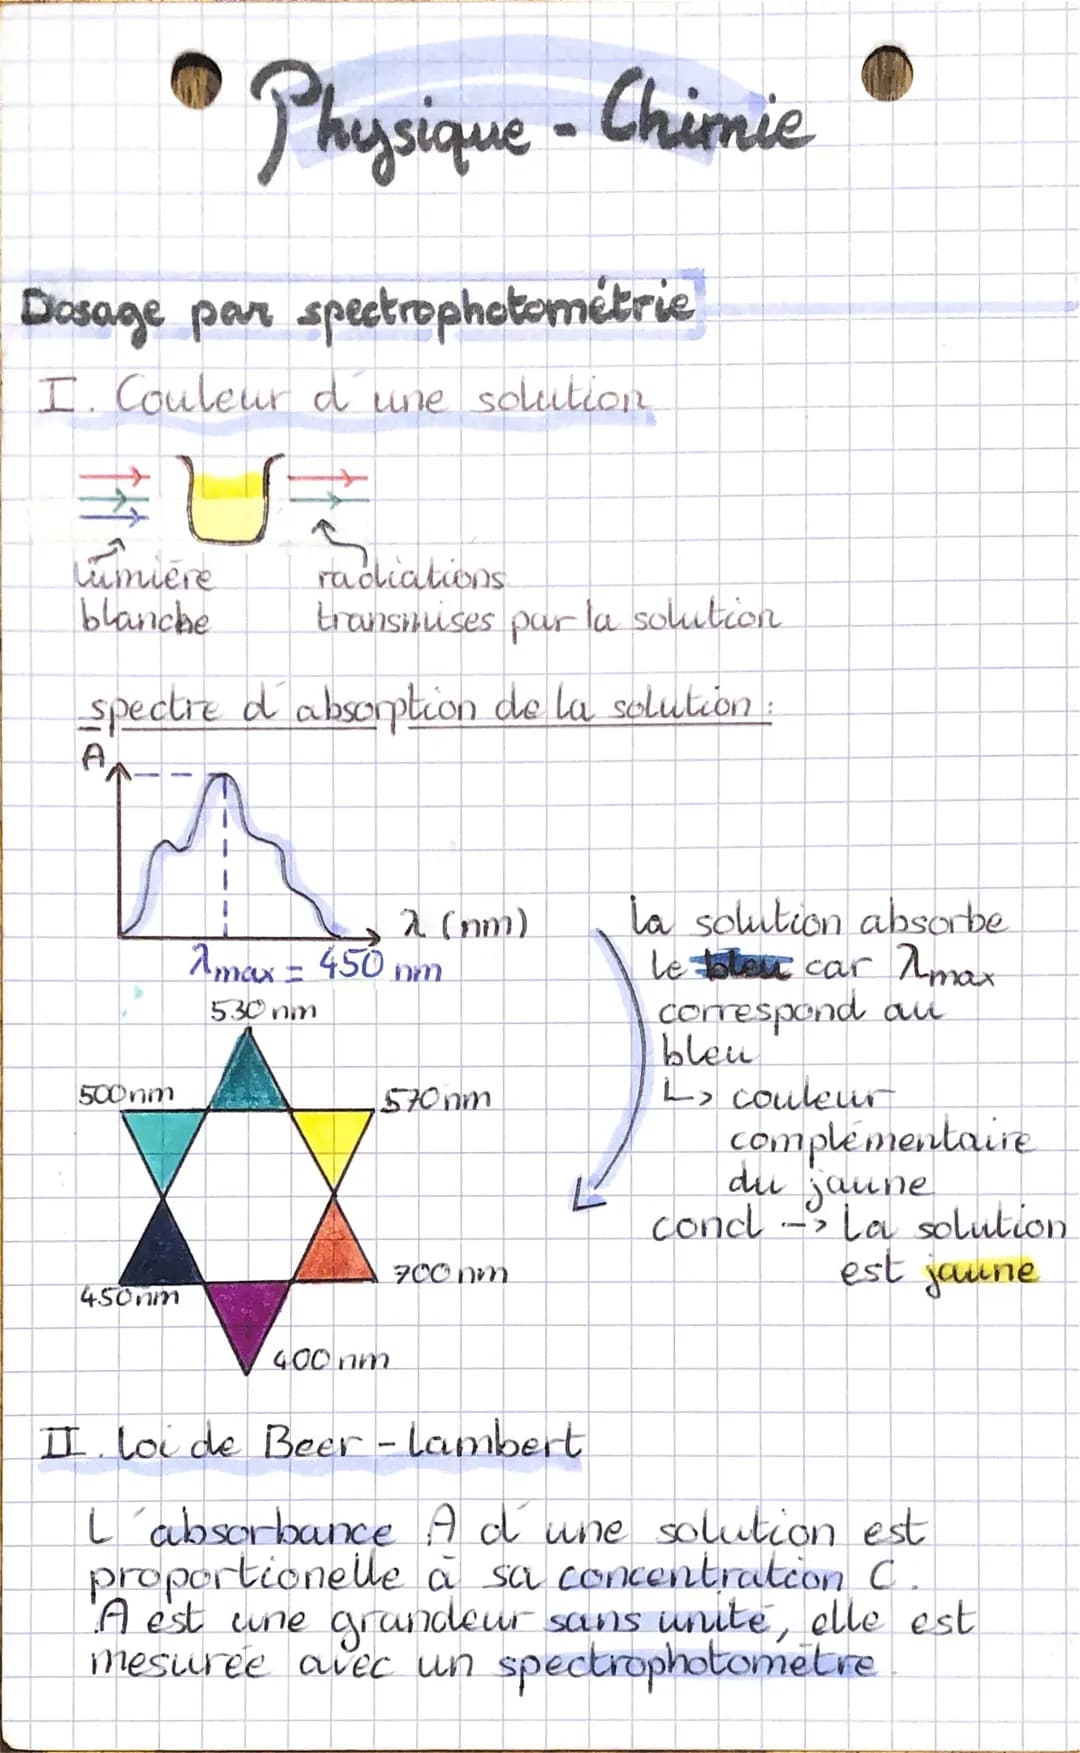 Physique - Chimie
Dosage par spectrophotométrie
I. Couleur d'une solution
lumière
blanche
radiations
transmises par la solution
spectre d'absorption de la solution :
A
λ (nm)
λmax = 450 nm
530 nm
500 nm
570 nm
450 nm
700 nm
400 nm
la solution absorbe
le bleu car λmax
correspond au
bleu
↳ couleur
complémentaire
du jaune
concl -> La solution
est jaune
II. Loi de Beer - Lambert
L'absorbance A d'une solution est
proportionelle à sa concentration C.
A est une grandeur sans unité, elle est
mesurée avec un spectrophotomètre.